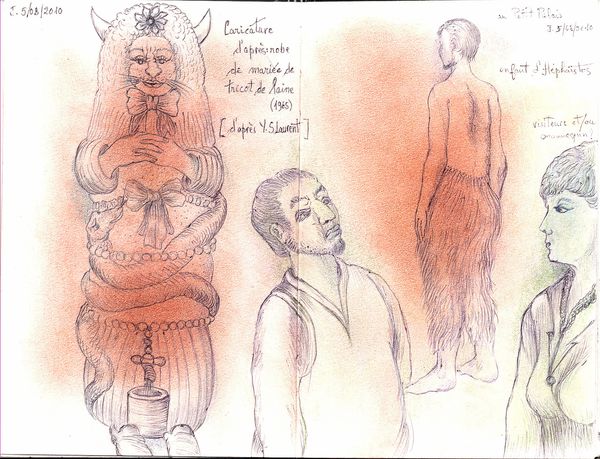 I. 5/08/2010
Caricature
d'après: robe
de mariée de
tricot de laine
(1965)
[d'après Y. S. Laurent]
au Petit Palais
I. 5/08/2010
enfant d'Héphaïstos
visiteurs et/ou
mannequin!